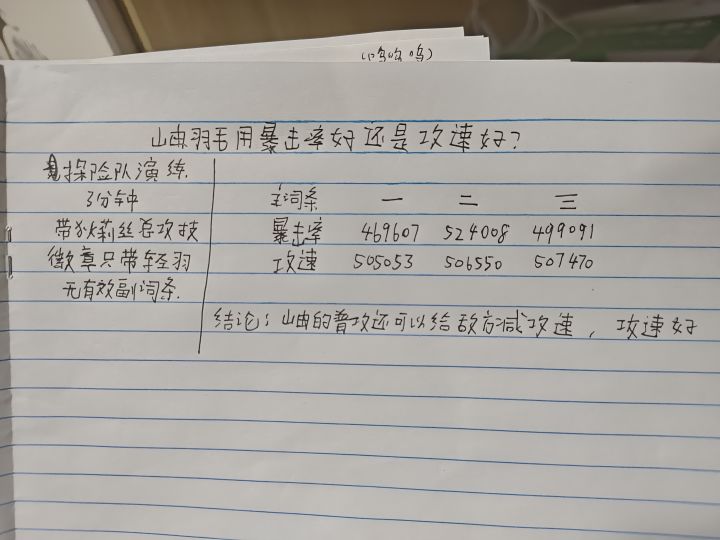 (呜呜呜)
山由羽毛用暴击率好还是攻速好？
探险队演练.
3分钟
徽章只带轻羽
无有效副词条.
主词条 一 二 三
暴击率 469607 524008 499091
攻速 505053 506550 507470
结论：山由的普攻还可以给敌方减攻速，攻速好